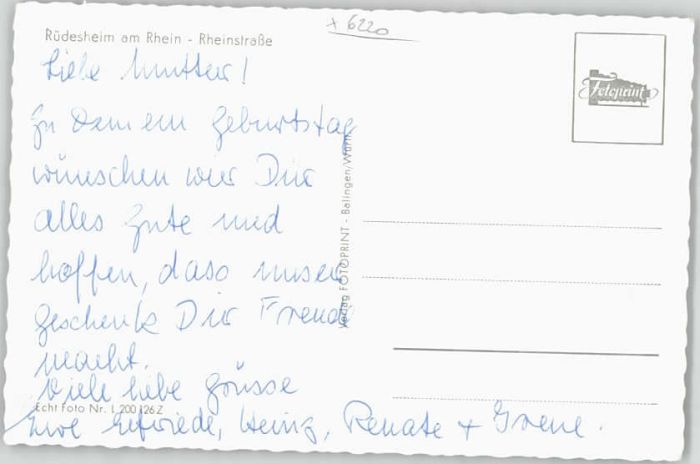 x 6220
Rüdesheim am Rhein - Rheinstraße
Fotoprint
Liebe Mutter!
Zu Deinem Geburtstag
wünschen wir Dir
alles Gute und
hoffen, dass unser
Geschenk Dir Freude
macht.
Viele liebe Grüsse
Eure Elfriede, Heinz, Renate + Irene.
Verlag FOTOPRINT - Balingen/Württ.
Echt Foto Nr. L 200 126 Z